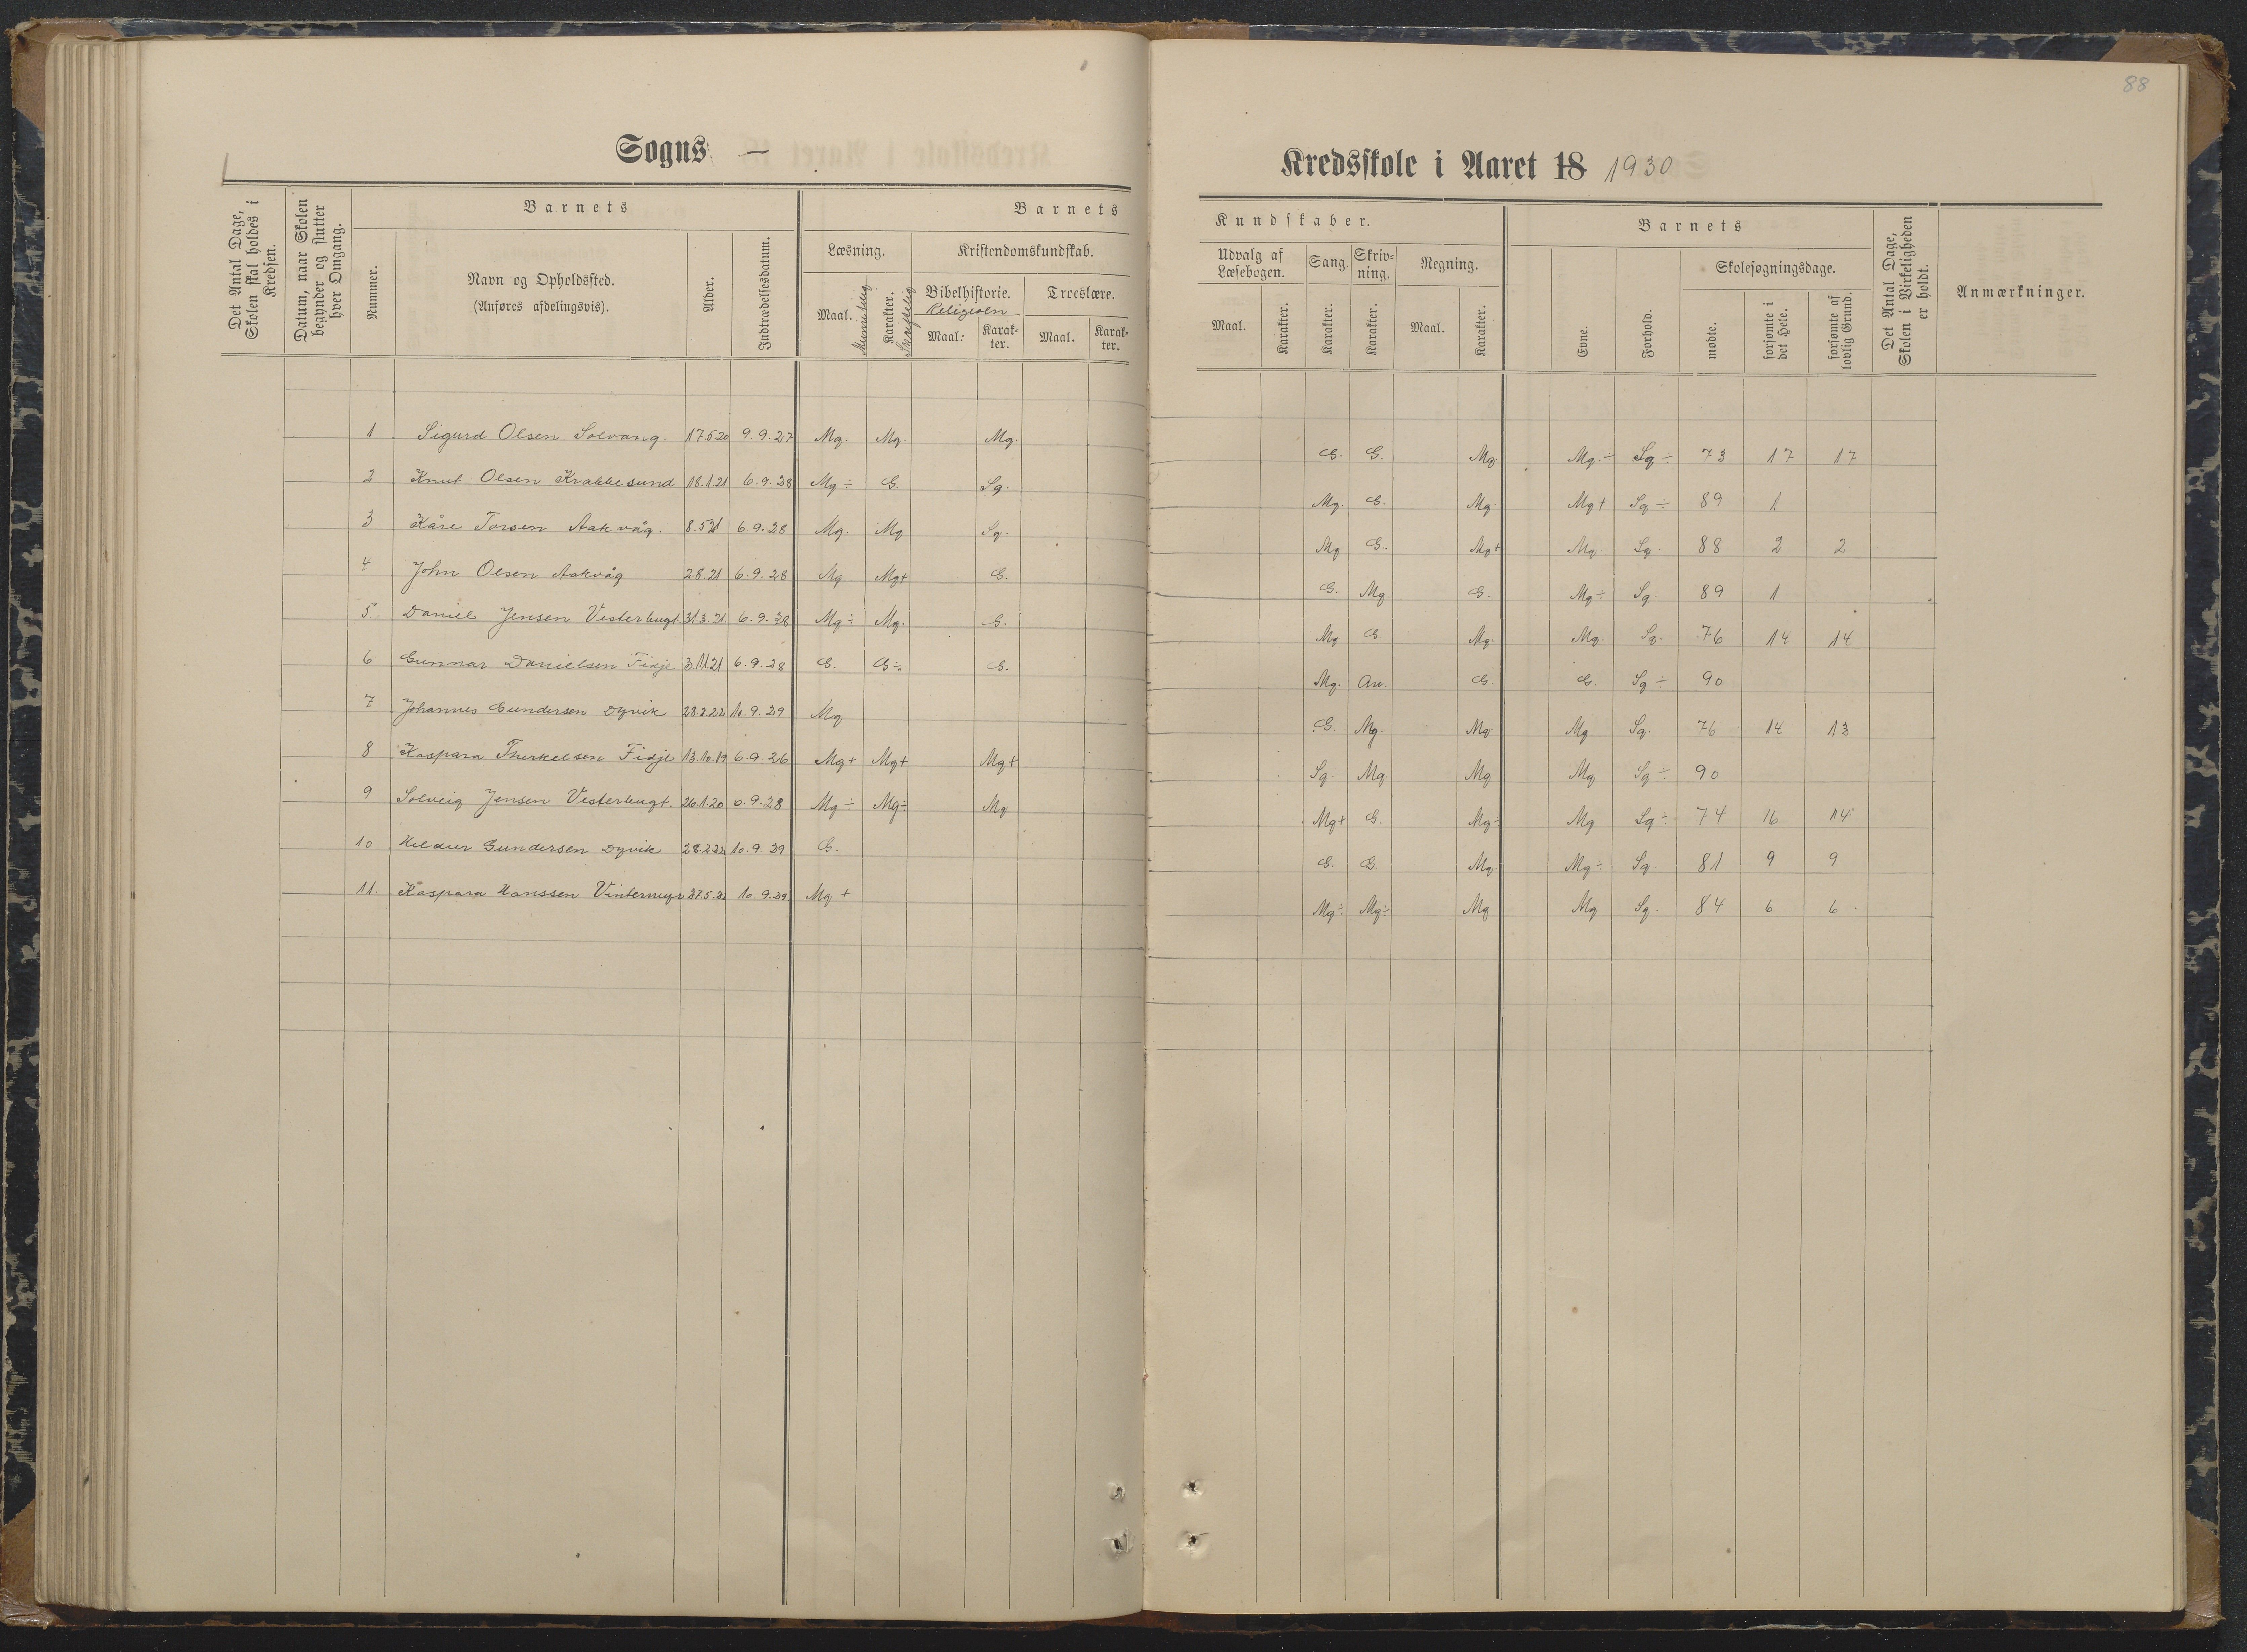 88
Sogns —
Kredsskole i Aaret 18 1930
Det Antal Dage, Skolen skal holdes i Kredsen.
Datum, naar Skolen begynder og slutter hver Omgang.
Barnets
Nummer.
Navn og Opholdssted.
(Anføres afdelingsvis).
Alder.
Indtrædelsesdatum.
Barnets
Læsning.
Maal.
Karakter.
Skriftelig
Kristendomskundskab.
Bibelhistorie.
Religion
Maal.
Karakter.
Troeslære.
Maal.
Karakter.
Kundskaber.
Udvalg af Læsebogen.
Maal.
Karakter.
Sang.
Karakter.
Skrivning.
Karakter.
Regning.
Maal.
Karakter.
Barnets
Evne.
Forhold.
Skolesøgningsdage.
mødte.
forsømte i det Hele.
forsømte af lovlig Grund.
Det Antal Dage, Skolen i Virkeligheden er holdt.
Anmærkninger.
1 Sigurd Olsen Solvang. 17.5.20 9.9.27 Mg. Mg. Mg. G. G. Mg. Mg.÷ Sg÷ 73 17 17
2 Knut Olsen Krabbesund 18.1.21 6.9.28 Mg÷ G. Sg. Mg. G. Mg. Mg+ Sg÷ 89 1
3 Kåre Torsen Aakvåg. 8.5.21 6.9.28 Mg. Mg Sg. Mg G. Mg+ Mg Sg. 88 2 2
4 John Olsen Aakvåg 2.8.21 6.9.28 Mg Mg+ G. G. Mg. G. Mg÷ Sg 89 1
5 Daniel Jensen Vesterbugt 31.3.21 6.9.28 Mg÷ Mg. G. Mg G. Mg. Mg. Sg. 76 14 14
6 Gunnar Danielsen Fidje 3.11.21 6.9.28 G. G÷ G. Mg. G. G. Sg÷ 90
7 Johannes Gundersen Dyvik 28.2.22 10.9.29 Mg G. Mg. Mg Mg Sg. 76 14 13
8 Kaspara Therkelsen Fidje 13.10.19 6.9.26 Mg+ Mg+ Mg+ Sg. Mg Mg Mg Sg÷ 90
9 Solveig Jensen Vesterbugt. 26.1.20 6.9.28 Mg÷ Mg÷ Mg Mg+ G. Mg÷ Mg Sg÷ 74 16 14
10 Hildur Gundersen Dyvik 28.2.22 10.9.29 G. G. G. Mg. Mg÷ Sg. 81 9 9
11. Kaspara Hanssen 10.9.29 Mg+ Mg÷ Mg÷ Mg Mg Sg. 84 6 6